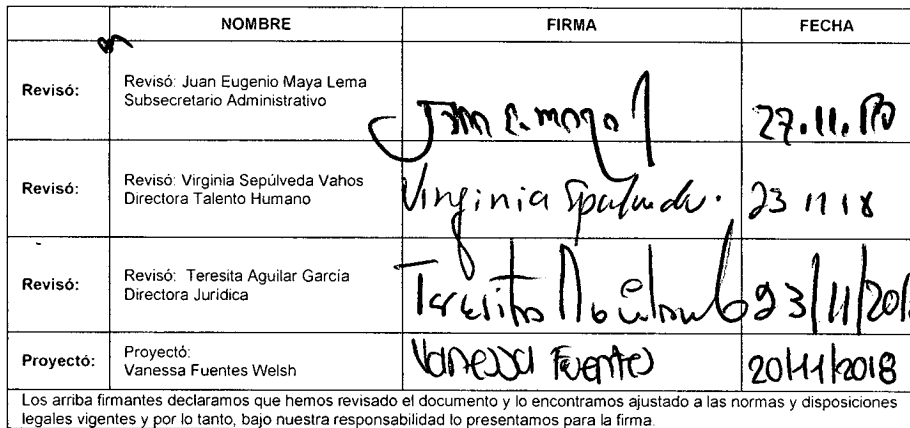 NOMBRE FIRMA FECHA
Revisó: Revisó: Juan Eugenio Maya Lema
Subsecretario Administrativo
27.11.18
Revisó: Revisó: Virginia Sepúlveda Vahos
Directora Talento Humano
Virginia Sepulveda. 23 11 18
Revisó: Revisó: Teresita Aguilar García
Directora Jurídica
Teresita 23/11/201
Proyectó: Proyectó:
Vanessa Fuentes Welsh
Vanessa Fuentes 20/11/2018
Los arriba firmantes declaramos que hemos revisado el documento y lo encontramos ajustado a las normas y disposiciones
legales vigentes y por lo tanto, bajo nuestra responsabilidad lo presentamos para la firma.